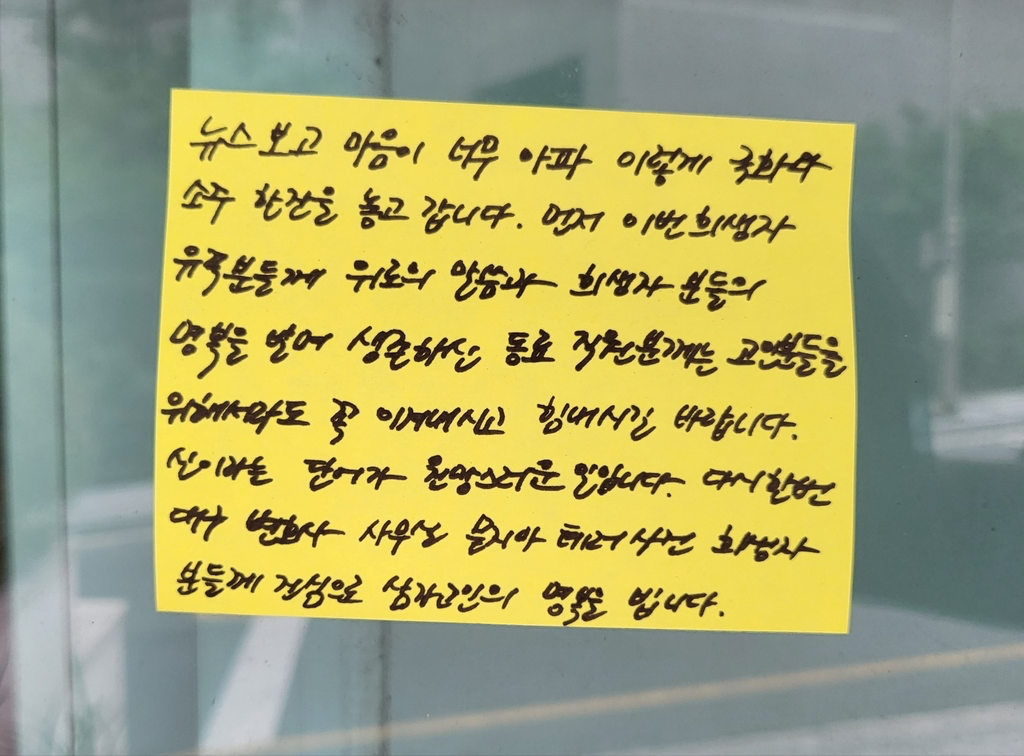 뉴스보고 마음이 너무 아파 이렇게 국화와
소주 한잔을 놓고 갑니다. 먼저 이번희생자
유족분들께 위로의 말씀과 희생자 분들의
명복을 빌며 생존하신 동료 직원분께는 고인분들을
위해서라도 꼭 이겨내시고 힘내시길 바랍니다.
신이라는 단어가 원망스러운 일입니다. 다시한번
대구 변호사 사무실 묻지마 테러사건 희생자
분들께 진심으로 삼가고인의 명복을 빕니다.